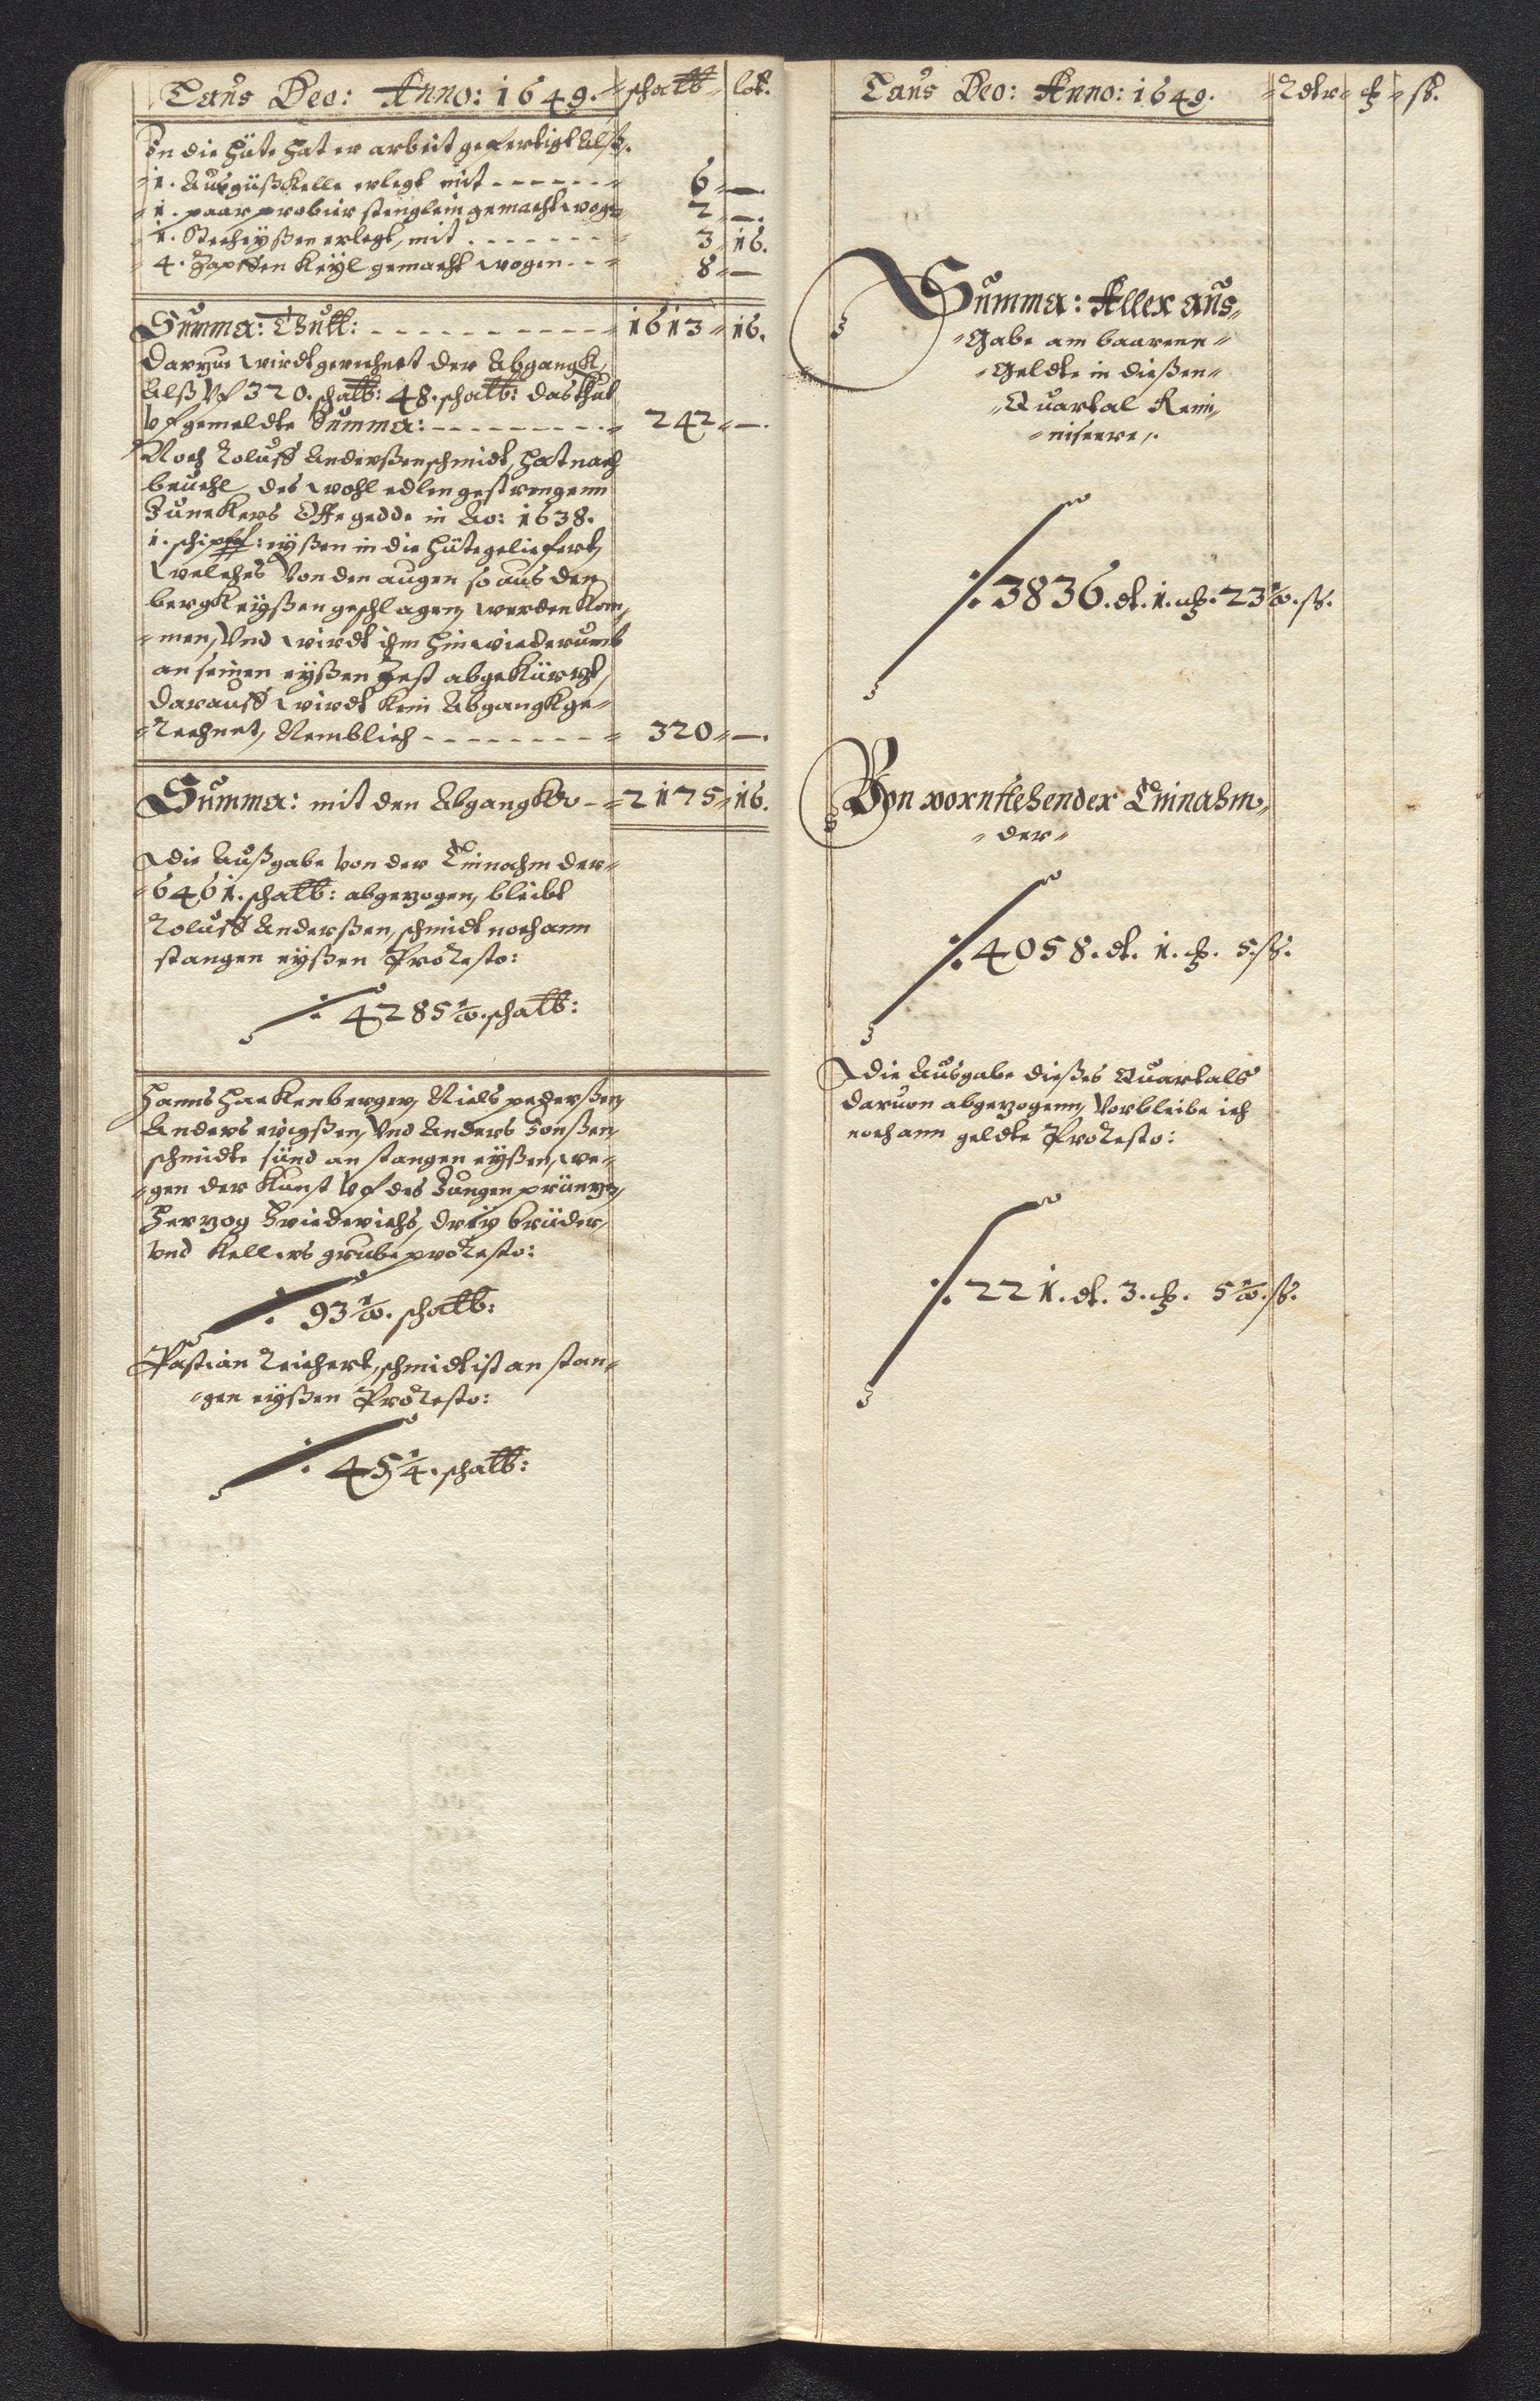 Laus Deo: Anno: 1649. schalb lot.
In die Hüte hat er arbeit gefertigt Alß.
1. Ausgüßkelle erlegt mit - - - - - 6 -
1. paar probier stenglein gemacht wogn 2 -.
1. Stecheyßen erlegt, mit - - - - - 3 16.
4. Zapffen Keyl gemacht wogen - - 8 -
Summa: Thutt: - - - - - - - - - 1613 16.
Darzue wirdt gerechnet der Abgangk,
Alß Vf 320. schalb: 48. schalb: das thut
Vf gemeldte Summa: - - - - - - - - 242 -.
Noch Roluff Anderßen schmidt, hat nach
beuehl des wohl edlen gestrengenn
Junckers Offe gedde in Ao: 1638.
1. schipff: eyßen in die Hüte geliefert,
welches Von den augen so aus den
bergk eyßen geschlagen, werden kom,
men, Vnd wirdt ihm hinwiederumb
an seinen eyßen Rest abgekürtzt,
Darauff wirdt kein Abgangk ge-
Rechnet, Nemblich - - - - - - - 320 -.
Summa: mit den Abgangk - 2175 16.
Die Außgabe Von der Einnahm der
6461. schalb: abgezogen, bleibt
Roluff Anderßen, schmidt noch ann
stangen eyßen Pro Resto:
⁒ 4285 ½. schalb:
Hanns Hackenberger, Niels pederßen,
Anders ericgßen, Vnd Anders Jonßen,
schmidte sünd an stangen eyßen, we-
gen der Kunst Vf des Jungen printzn,
Herzog Friederichs, drey brüder,
Vnd Kellers grube pro Resto:
⁒ 93 ½. schalb:
Pastian Reichert, schmidt ist an stan-
gen eyßen Pro Resto:
⁒ 45 ¼. schalb:
Laus Deo: Anno: 1649. Rdlr ß.
Summa: Aller aus-
Gabe am baarenn
Geldte in dießen
Quartal Remi,
niscere,.
⁒ 3836. dl. 1. 23 ½. ß.
Von vornstehender Einnahm,
der
⁒ 4058. dl. 1. 5. ß.
Die Ausgabe dießes Quartals
daruon abgezogenn, Verbleibe ich
noch ann geldte Pro Resto:
⁒ 221. dl. 3. 5 ½. ß.